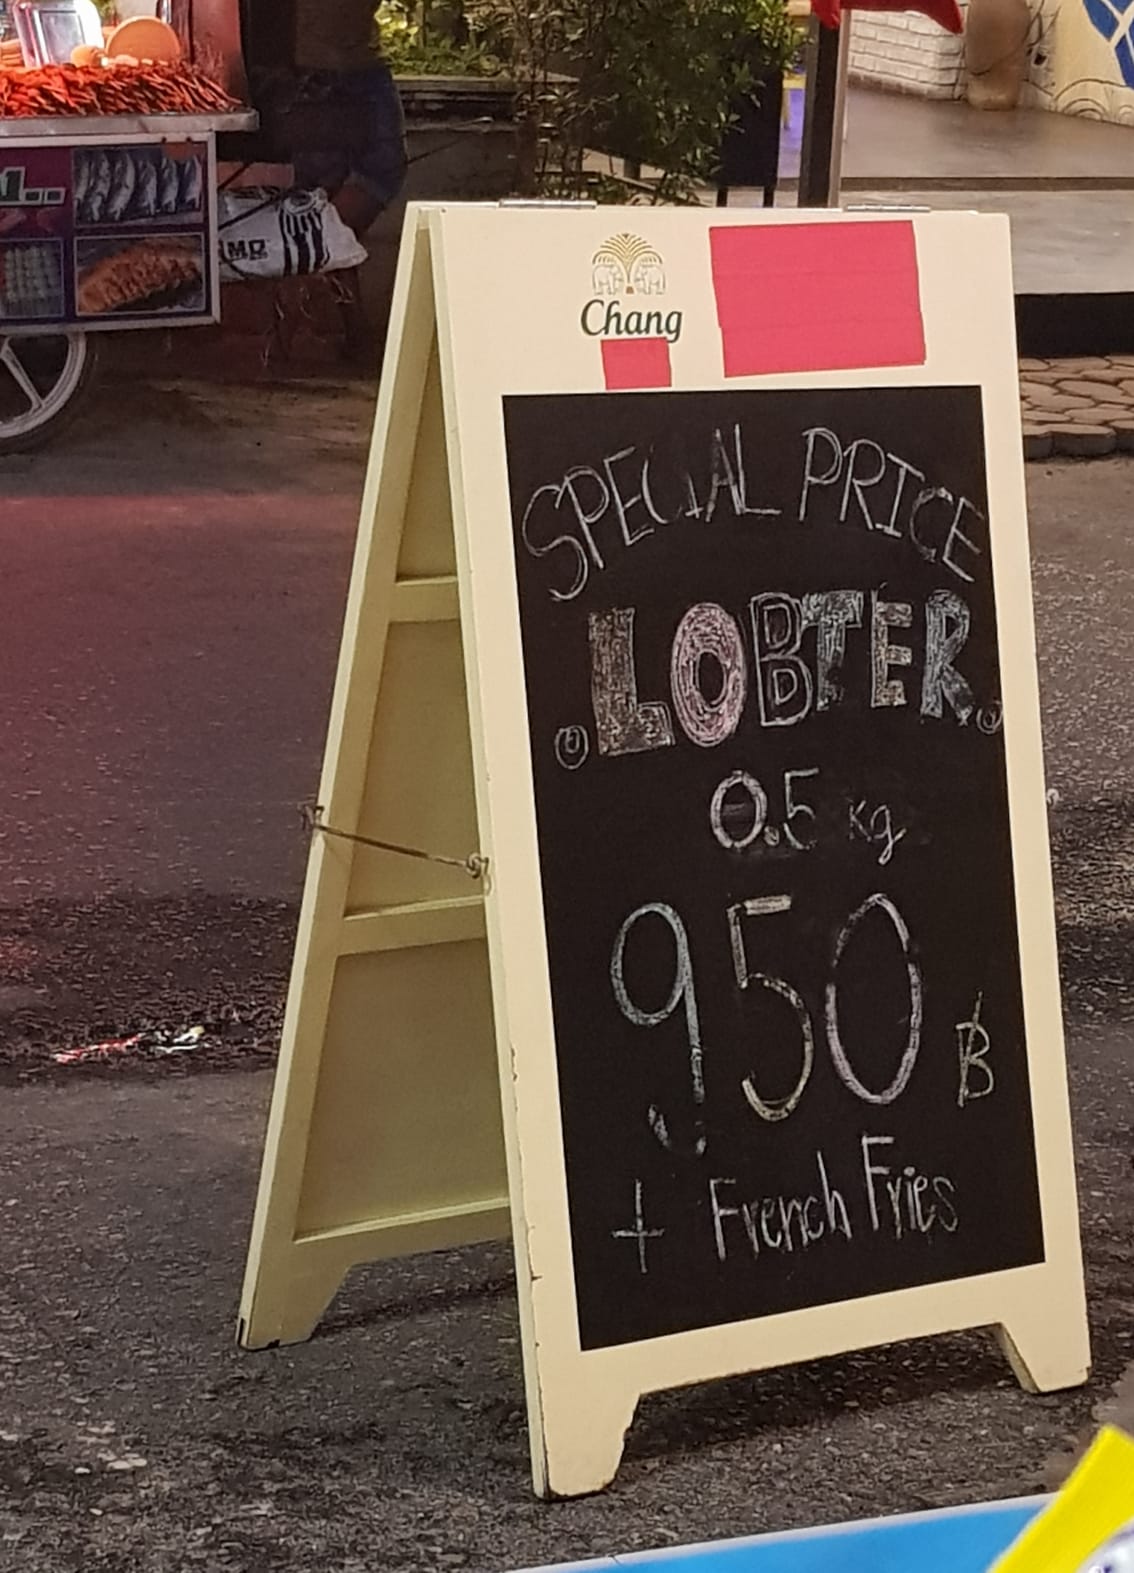 Chang
SPECIAL PRICE
LOBTER
0.5 Kg
950 ฿
+ French Fries